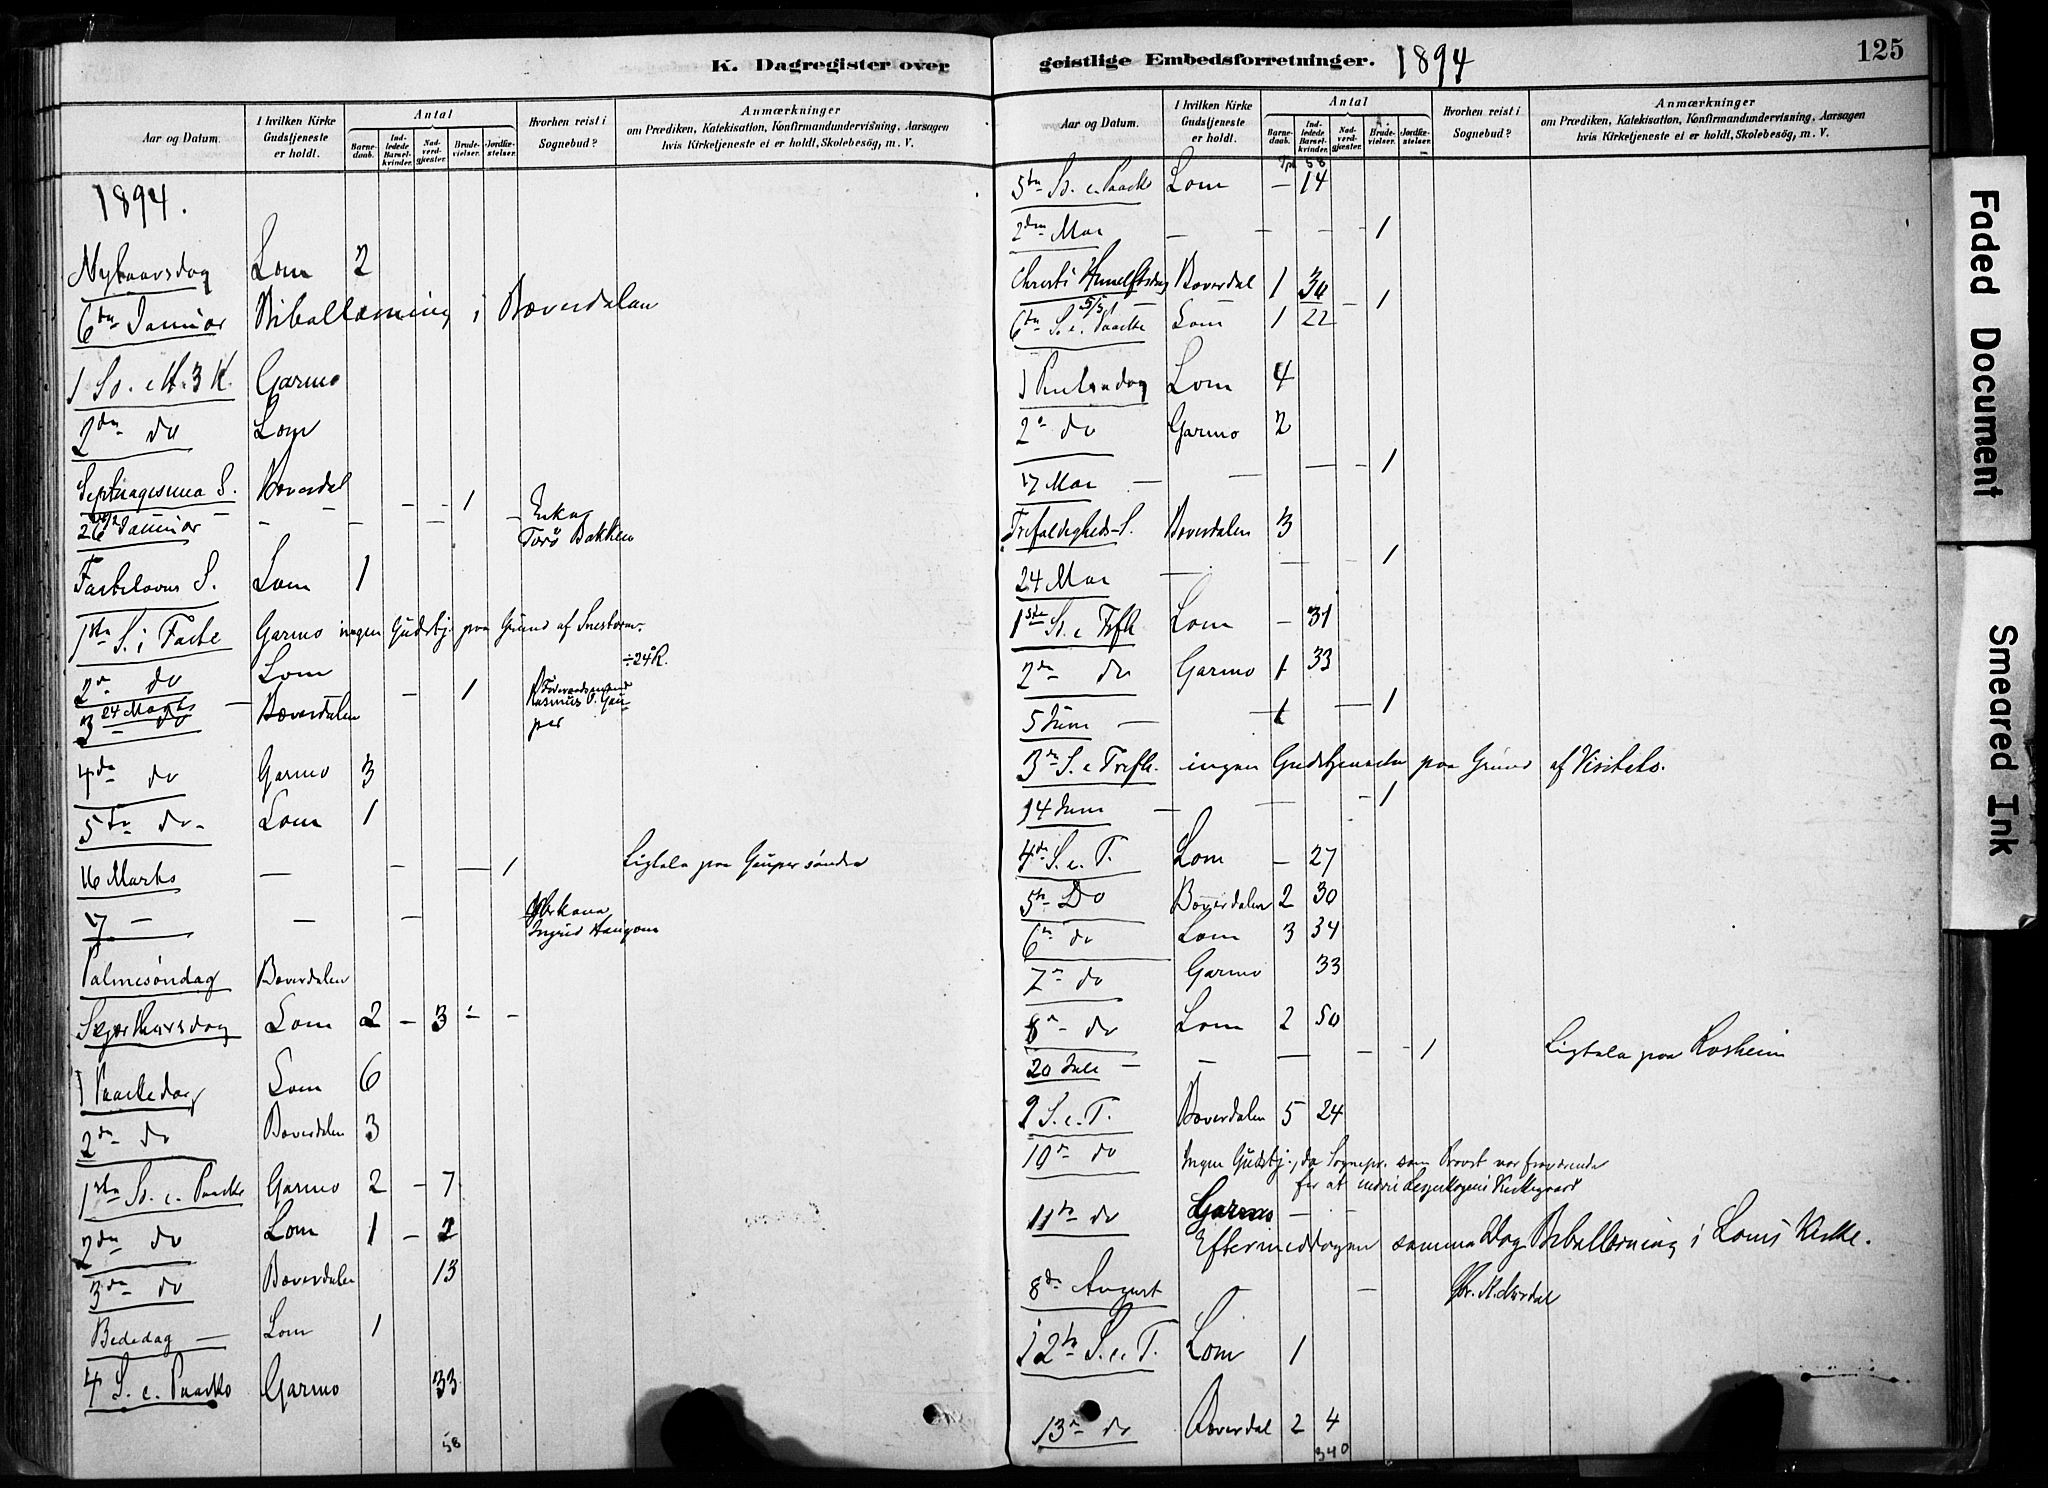 K. Dagregister over
Aar og Datum.
I hvilken Kirke Gudstjeneste er holdt.
Antal
Barnedaab.
Indledede Barselkvinder.
Nadverdgjæster.
Brudevielser.
Jordfæstelser.
Hvorhen reist i Sognebud?
Anmærkninger
om Prædiken, Katekisation, Konfirmandundervisning, Aarsagen
hvis Kirketjeneste ei er holdt, Skolebesög, m. V.
1894.
Nytaarsdag Lom 2
6te Januar Bibellæsning i Bæverdalen
1 S. e. H. 3 K. Garmo
2den do Lom
Septuagesima S. Bæverdal
26 Januar - - - - 1 - Enke
Toro Bakken
Fastelavns S. Lom 1
1ste S. i Faste Garmo ingen Gudstj. paa Grund af Snestorm.
÷24°R.
2n do Lom
24 Marts - - 1 Rasmus O. Gauper
3 do Bæverdalen
4de do Garmo 3
5te do Lom 1
16 Marts - - - 1 Ligtale paa Gauper søndre
17 - - -
Ingrid Haugom
Palmesøndag Bæverdalen
Skjærthursdag Lom 2 - 3 - -
1 Paaskedag Lom 6
2den do Bæverdalen 3
1ste S. e. Paaske Garmo 2 - 7
2den do Lom 1 - 2
3de do Bæverdalen 13
Bededag - Lom 1
4 S. e. Paaske Garmo 33
58
geistlige Embedsforretninger. 1894
125
Aar og Datum.
I hvilken Kirke Gudstjeneste er holdt.
Antal
Barnedaab.
Indledede Barselkvinder.
Nadverdgjæster.
Brudevielser.
Jordfæstelser.
Hvorhen reist i Sognebud?
Anmærkninger
om Prædiken, Katekisation, Konfirmandundervisning, Aarsagen
hvis Kirketjeneste ei er holdt, Skolebesög, m. V.
58
5te S. e. Paaske Lom - 14
2den Mai - - - - 1
Christi Himmelfartsdag Bæverdal 1 30
5/5 - 1
6te S. e. Paaske Lom 1 22
1 Pintsedag Lom 4
2n do Garmo 2
17 Mai - - - - 1
Trefoldigheds-S. Bæverdalen 3
24 Mai - - - 1
1ste S. e. Trefh Lom - 31
2den do Garmo 1 33
5 Juni - - - 1
3de S. e. Trefh. ingen Gudstjeneste paa Grund af Visitats.
14 Juni - - - 1
4de S. e. T. Lom - 27
5te Do Bæverdalen 2 30
6te do Lom 3 34
7n do Garmo 33
8n do Lom 2 50
20 Juli - - - - - 1 Ligtale paa Rosheim
9 S. e. T. Bæverdalen 5 24
10n do Ingen Gudstj., da Sognepr. som Provst var fraværende
for at indvie Kirkegaard
11te do Garmo - -
Eftermiddagen samme Dag Bibellæsning i Loms Kirke.
8de August - -
12te S. e. T. Lom 1
13n do Bæverdal 2 4
340
Faded Document
Smeared Ink